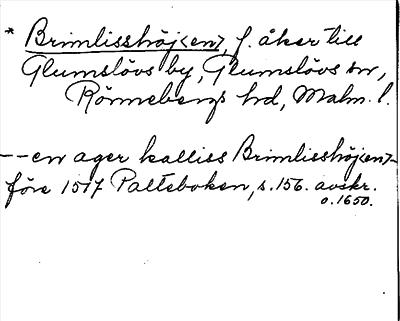 * Brimlisshöj<en>, f. åker till
Glumslövs by, Glumslövs sn,
Rönnebergs hd, Malm. l.
--en ager kalliss Brimlisshöj<en>-
före 1517 Palteboken, s. 156. avskr.
o. 1650.